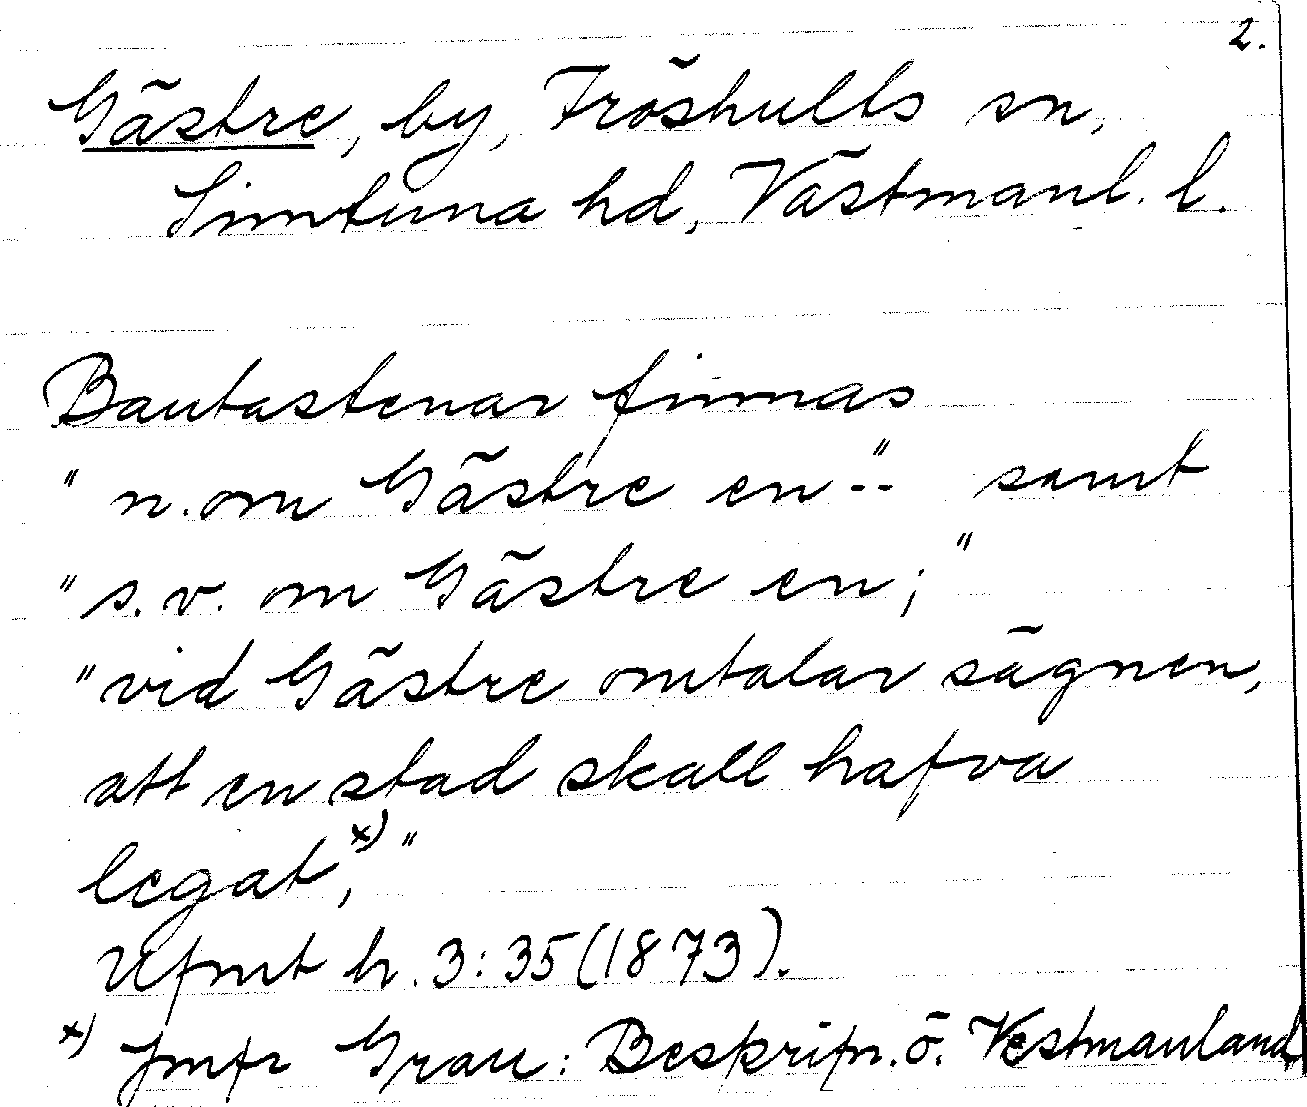 2.
Gästre, by, Fröshults sn,
Simtuna hd, Västmanl. l.
Bautastenar finnas
" n. om Gästre en --" samt
" s.v. om Gästre en; "
"vid Gästre omtalar sägnen,
att en stad skall hafva
legat x), "
Ufmt h. 3:35 (1873).
x) Jmfr Grau: Beskrifn. ö. Vestmanland